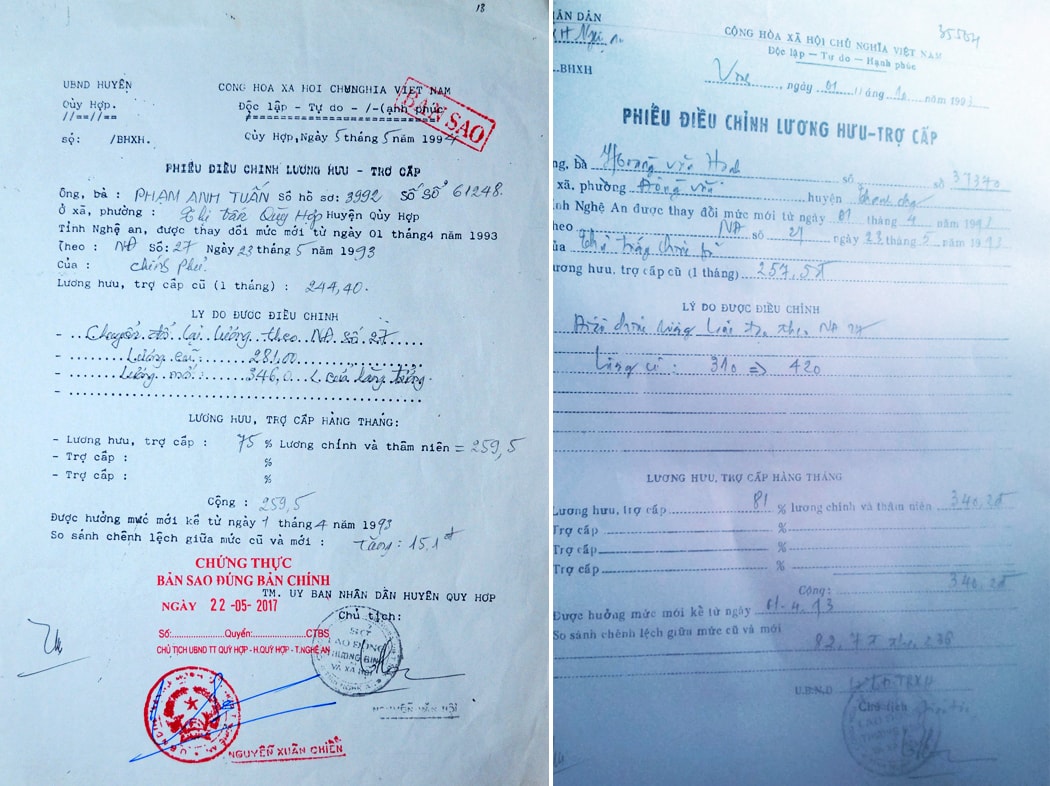 18
UBND HUYỆN
CONG HOA XA HOI CHUNGHIA VIET NAM
Qùy Hợp.
Độc lập - Tự do -/-(ạnh phúc
//==//==
BẢN SAO
số: /BHXH.
Qùy Hợp,Ngày 5 tháng 5 năm 1994
PHIẾU ĐIỀU CHỈNH LƯƠNG HƯU - TRỢ CẤP
Ông, bà : PHẠM ANH TUẤN Số hồ sơ: 3992 số sổ 61248.
Ở xã, phường : Thị trấn Qùy Hợp Huyện Qùy Hợp
Tỉnh Nghệ an, được thay đổi mức mới từ ngày 01 tháng4 năm 1993
Theo : NĐ Số: 27 Ngày 23 tháng 5 năm 1993
Của : Chính Phủ.
Lương hưu, trợ cấp cũ (1 tháng) : 244,40.
LÝ DO ĐƯỢC ĐIỀU CHỈNH
- Chuyển đổi lại lương theo NĐ số 27
- Lương cũ: 281,00
- Lương mới: 346,0
-
LƯƠNG HƯU, TRỢ CẤP HÀNG THÁNG:
- Lương hưu, trợ cấp : 75 % Lương chính và thâm niên = 259,5
- Trợ cấp : %
- Trợ cấp : %
Cộng : 259,5
Được hưởng mức mới kể từ ngày 1 tháng 4 năm 1993
So sánh chênh lệch giữa mức cũ và mới : Tăng: 15,1đ
CHỨNG THỰC
BẢN SAO ĐÚNG BẢN CHÍNH
NGÀY 22 -05- 2017
TM. UY BAN NHÂN DÂN HUYỆN QUY HƠP
Chủ tịch:
Số:.............Quyển:..............CTBS
CHỦ TỊCH UBND TT QUỲ HỢP - H.QUỲ HỢP - T.NGHỆ AN
SỞ
LAO ĐỘNG
THƯƠNG BINH
VÀ XÃ HỘI
NGUYỄN XUÂN CHIẾN
HÂN DÂN
35564
CỘNG HÒA XÃ HỘI CHỦ NGHĨA VIỆT NAM
Độc lập - Tự do - Hạnh phúc
BHXH
Vinh, ngày 01 tháng 10 năm 1993
PHIẾU ĐIỀU CHỈNH LƯƠNG HƯU-TRỢ CẤP
ng, bà Hoàng văn số số 37340
xã, phường Đồng văn huyện Thanh chg
ỉnh Nghệ An được thay đổi mức mới từ ngày 01 tháng 4 năm 1993
heo NĐ số 27 ngày 23 tháng 5 năm 1993
ủa
ương hưu, trợ cấp cũ (1 tháng) 257,5đ
LÝ DO ĐƯỢC ĐIỀU CHỈNH
NĐ 27
Lương cũ : 310 => 420
LƯƠNG HƯU, TRỢ CẤP HÀNG THÁNG
Lương hưu, trợ cấp 81 % lương chính và thâm niên 340.2đ
Trợ cấp %
Trợ cấp %
Trợ cấp %
Cộng: 340.2đ
Được hưởng mức mới kể từ ngày 01-4-93
So sánh chênh lệch giữa mức cũ và mới
82,7
U.B.N.D
Chủ tịch